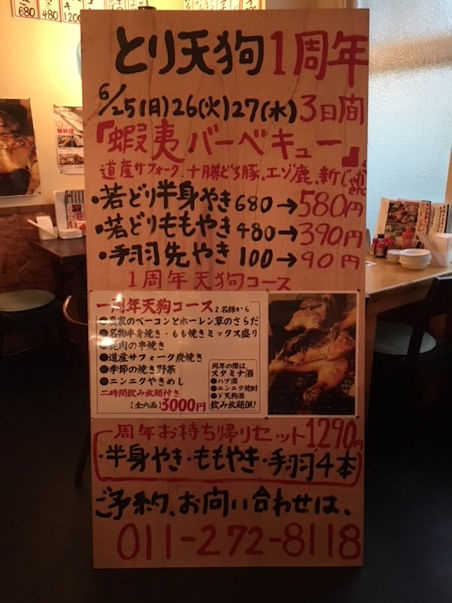 680 480 1200
とり天狗1周年
6/25(日)26(火)27(水)3日間
『蝦夷バーベキュー』
道産サフォーク、十勝どろ豚、エゾ鹿、新じゃがetc
・若どり半身やき680→580円
・若どりももやき480→390円
・手羽先やき100→90円
1周年天狗コース
一周年天狗コース 2名様から
●農家のベーコンとホーレン草のさらだ
●名物半身焼き・もも焼きミックス盛り
●鹿肉の串焼き
●道産サフォーク炭焼き
●季節の焼き野菜
●ニンニクやきめし
二時間飲み放題付き
(全六品)3000円
周年の際は、
スタミナ酒
●ハブ酒
●ニンニク焼酎
●ド天狗酒
飲み放題OK!
周年お持ち帰りセット1290円
・半身やき・ももやき・手羽4本
ご予約、お問い合わせは、
011-272-8118